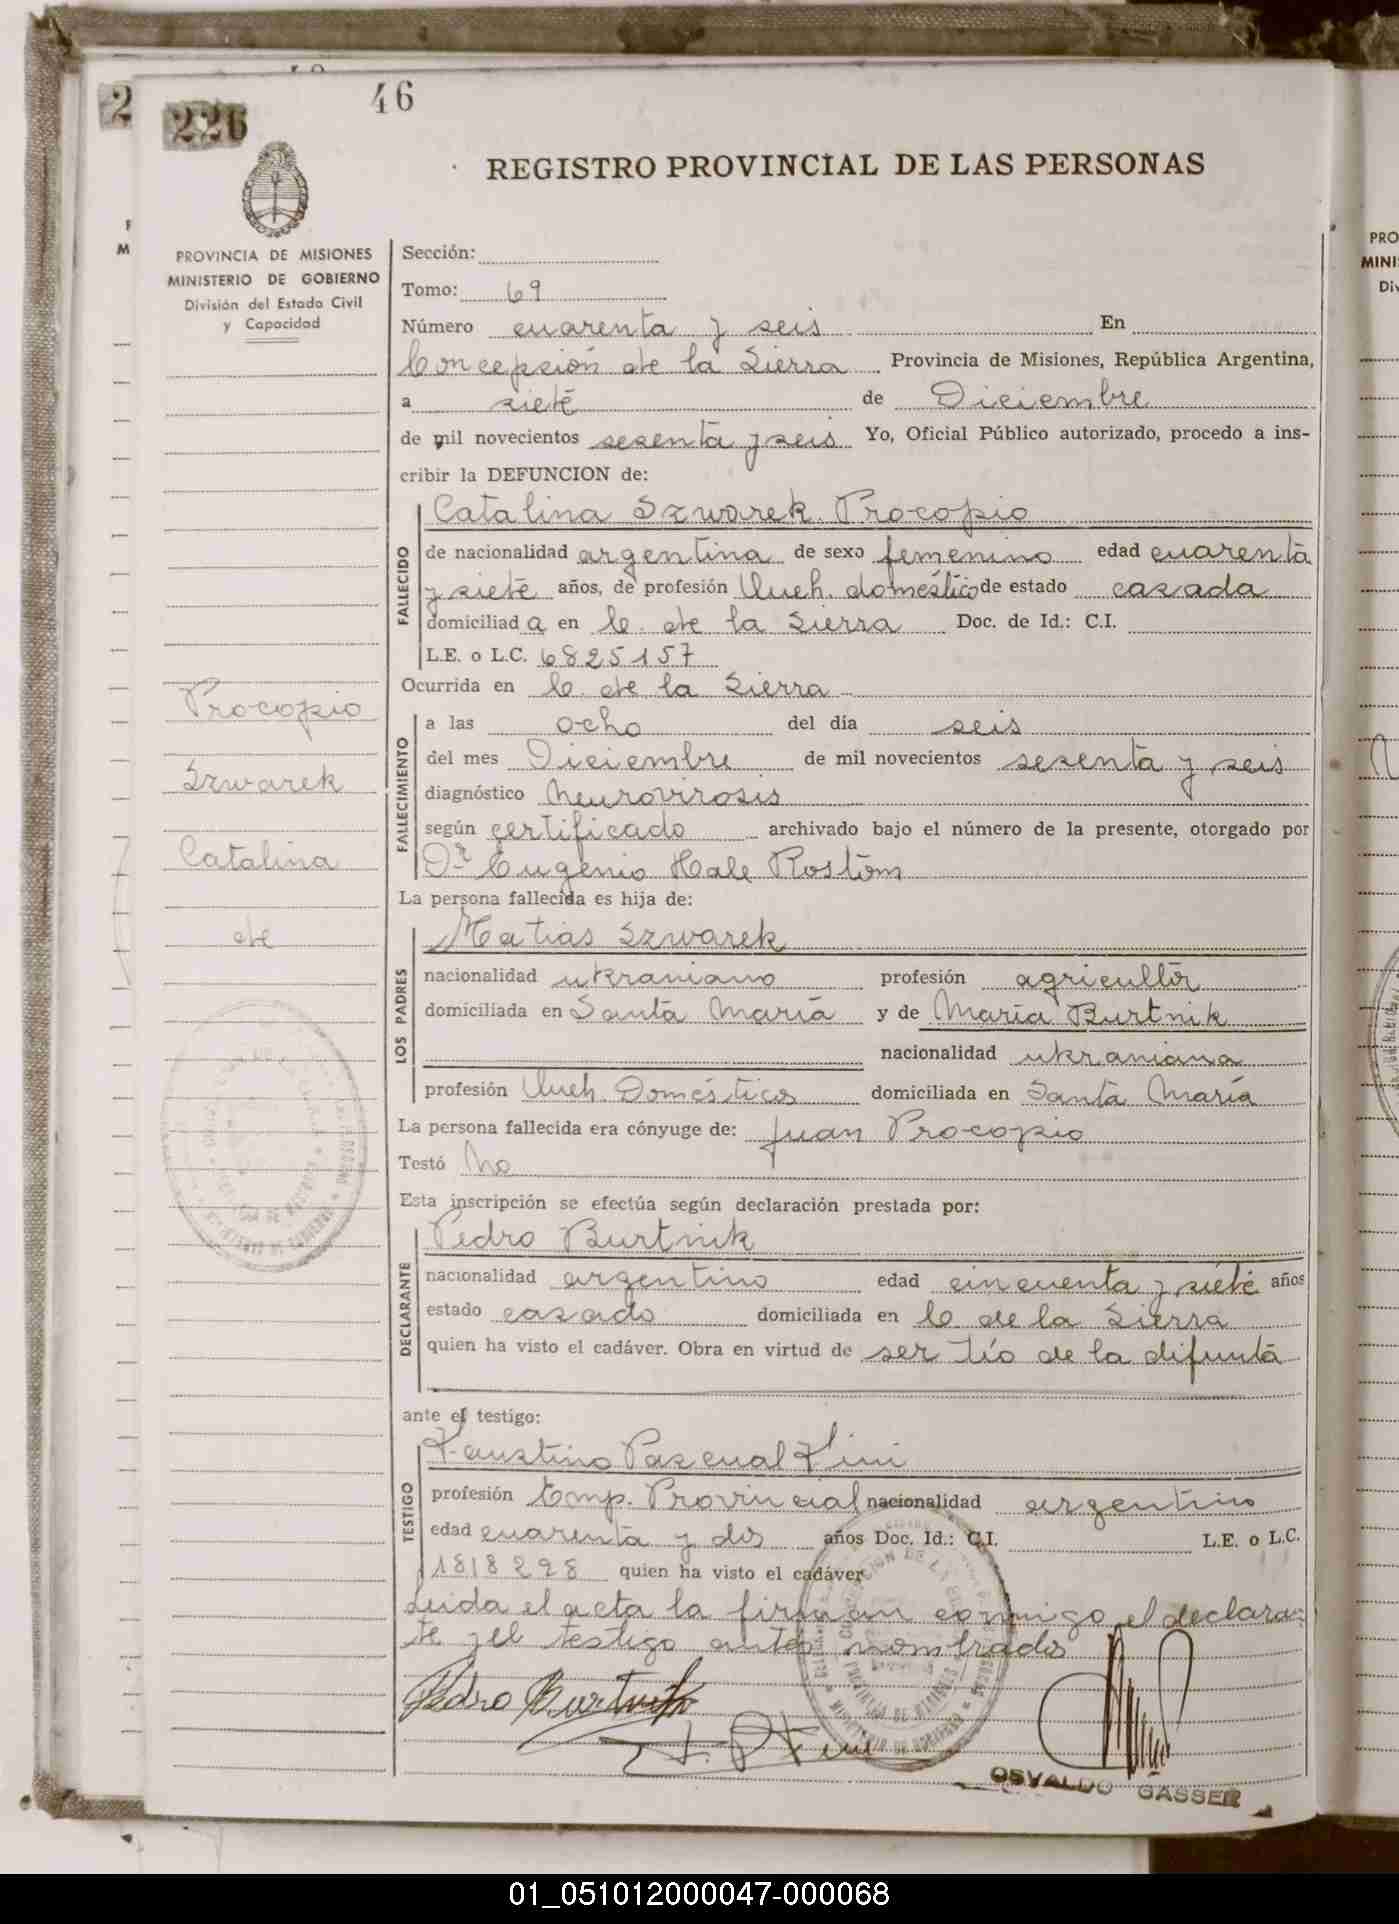 46
226
REGISTRO PROVINCIAL DE LAS PERSONAS
PROVINCIA DE MISIONES
MINISTERIO DE GOBIERNO
División del Estado Civil
y Capacidad
Procopio
Szwarek
Catalina
de
Sección:
Tomo: 69
Número cuarenta y seis En
Concepción de la Sierra Provincia de Misiones, República Argentina,
a siete de Diciembre
de mil novecientos sesenta y seis Yo, Oficial Público autorizado, procedo a ins-
cribir la DEFUNCION de:
FALLECIDO
Catalina Szwarek Procopio
de nacionalidad argentina de sexo femenino edad cuarenta
y siete años, de profesión Queh. doméstico de estado casada
domiciliad a en C. de la Sierra Doc. de Id.: C.I.
L.E. o L.C. 6825157
Ocurrida en C. de la Sierra
FALLECIMIENTO
a las ocho del día seis
del mes Diciembre de mil novecientos sesenta y seis
diagnóstico Neurovirosis
según certificado archivado bajo el número de la presente, otorgado por
Dr Eugenio Hale Rostom
La persona fallecida es hija de:
LOS PADRES
Matias Szwarek
nacionalidad ukraniano profesión agricultor
domiciliada en Santa María y de María Burtnik
nacionalidad ukraniana
profesión Queh. Domésticos domiciliada en Santa María
La persona fallecida era cónyuge de: Juan Procopio
Testó No
Esta inscripción se efectúa según declaración prestada por:
DECLARANTE
Pedro Burtnik
nacionalidad argentino edad cincuenta y siete años
estado casado domiciliada en C. de la Sierra
quien ha visto el cadáver. Obra en virtud de ser tío de la difunta
ante el testigo:
TESTIGO
Faustino Pascual Fini
profesión Emp. Provincial nacionalidad argentino
edad cuarenta y dos años Doc. Id.: C.I. L.E. o L.C.
1818298 quien ha visto el cadáver
Leida el acta la firman conmigo, el declaran-
te y el testigo antes nombrados
Pedro Burtnik
F. P. Fini
OSVALDO GASSER
PRO
MINI
Div
01_051012000047-000068